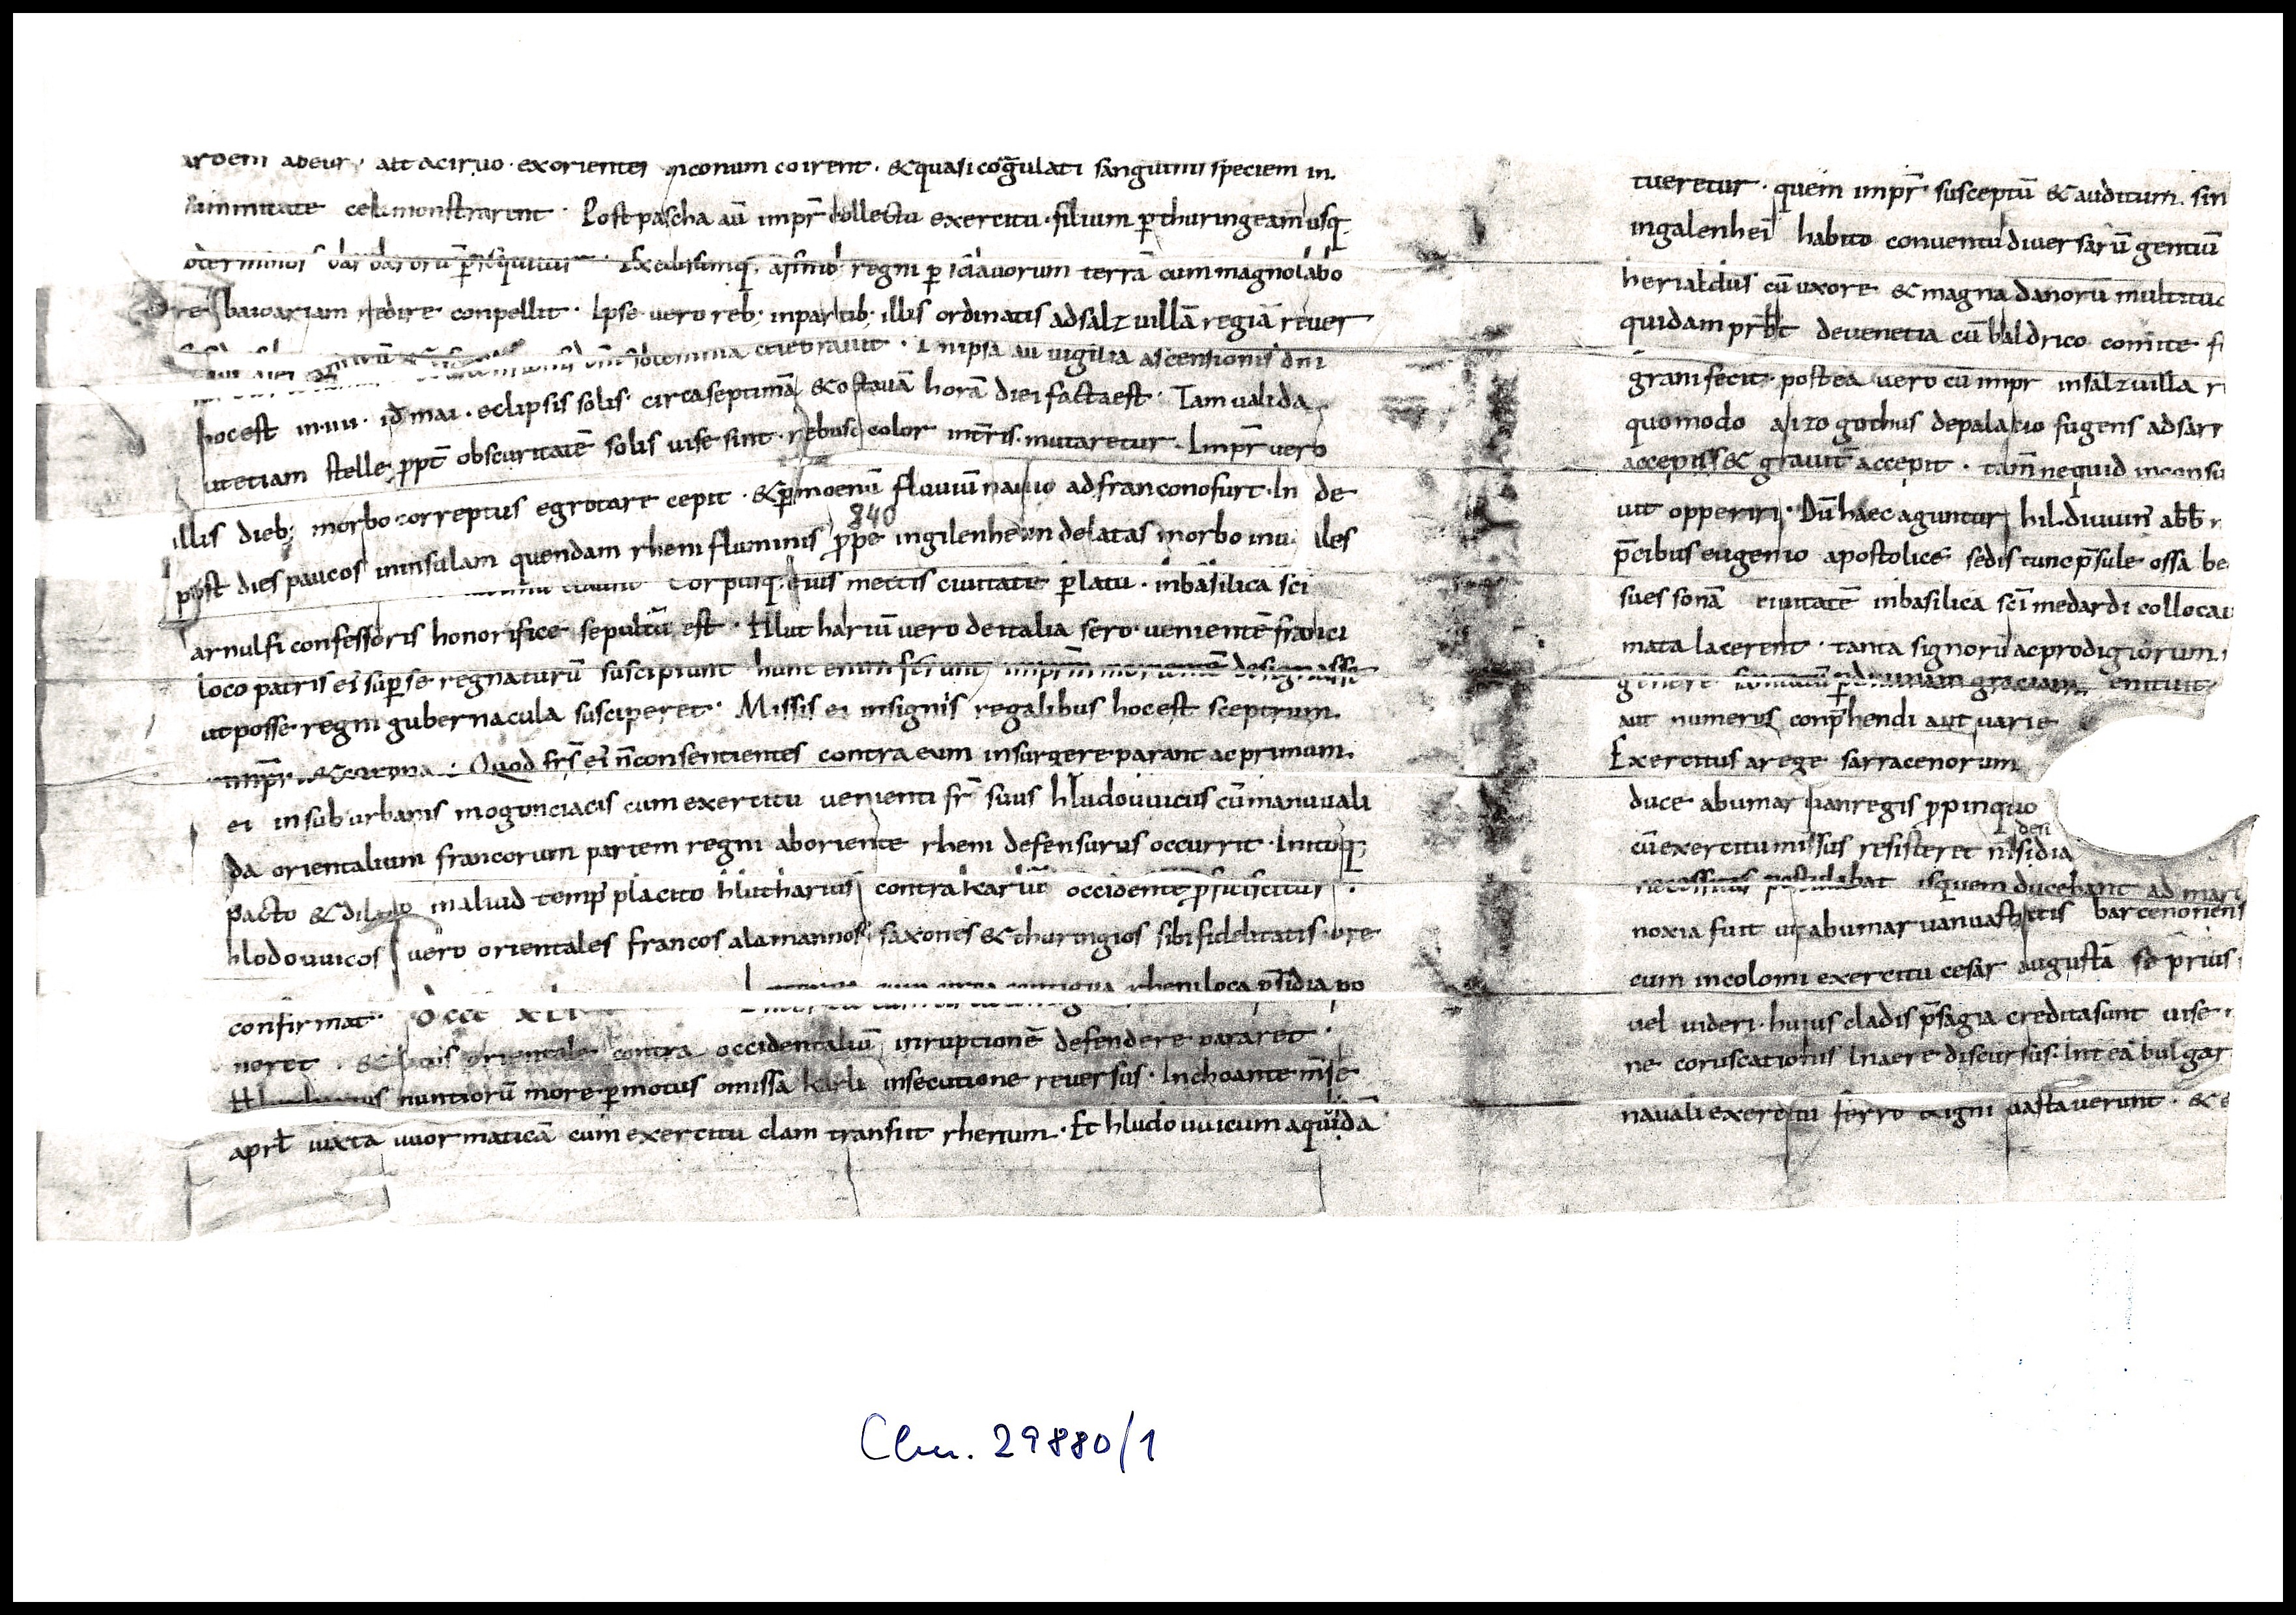 ardem abeur · att aciruo · exorientes inconum coirent · & quasi cogulati sanguinis speciem in
summitate celi monstrarent · Post pascha aū impr̄ collectu exercitu · filium p̄ thuringeam usq.
odterminos barbarorū p̄sequitur · Exclusumq. afinib: regni p̄ sclauorum terrā cum magno labo
re baioariam redire conpellit · Ipse vero reb; inpartib; illis ordinatis ad salz villā regiā rever
celebravit · In ipsa aū vigilia ascensionis dn̄i
hoc est in · iiii · id̄ mai · eclipsis solis circa septimā & octavā horā diei facta est · Tam valida
ut etiam stelle p̄pt̄ obscuritatē solis vise sint · rebusq color int̄ris · mutaretur · Impr̄ vero
illis dieb; morbo correptus egrotare cepit · & p̄ moenū fluviū navio ad franconofurt · In de
840
post dies paucos in insulam quendam rheni fluminis p̄pe ingilenheim delatas morbo inu iles
Corpusq. eius mettis civitate p̄latu · in basilica sc̄i
arnulfi confessoris honorifice sepultū est · Hlut hariū vero de italia sero · venientē franci
loco patris ei sup̄ se regnaturū suscipiunt hunc enim ferunt impr̄m morientē designasse
ut posse regni gubernacula susciperet · Missis ei insignis regalibus hoc est sceptrum
impr · & corona · Quod frs̄ ei n̄ consentientes contra eum insurgere parant ac primum ·
ei in suburbanis mogonciacis cum exercitu venienti fr̄ suus hludouuicus cū manu vali
da orientalium francorum partem regni ab oriente rheni defensurus occurrit · Initoq;
pacto & dilato in aliud temp placito Hlutharius contra karlū occidente p̄ficiscitur ·
hlodouuicos vero orientales francos alamannos saxones & thuringios sibi fidelitatis iure
confirmat · dccc xli rheni loca p̄sidia po
noret · & litus orientale contra occidentaliū inruptionē defendere pararet ·
Hlutharius nuntiorū more p̄motus omissa karli insecutione reversus · Inchoante m̄se
aprl̄ iuxta uuormaticā cum exercitu clam transiit rhenum · Et hludouuicum a quidā
tueretur · quem impr̄ susceptū & auditum · sin
ingalenheī habito conventu diversarū gentiū
herialdus cū uxore & magna danorū multitud
quidam prb̄t de venetia cū baldrico comite f
grani fecit · postea vero cū impr in salz villa r
quomodo aizo gothus de palatio fugens ad sarr
accepiss& gravit̄ accepit · tam̄ ne quid inconsu
uit opperiri · Dū haec aguntur hildiuuin abb̄ r
p̄cibus eugenio apostolice sedis tunc p̄sule ossa be
suessonā civitatē in basilica sc̄i medardi collocau
mata lacerent · tanta signorū ac prodigiorum
genere sanitatū p̄ divinam graciam enituit
aut numerus conp̄hendi aut varie
Exercitus a rege sarracenorum
duce abumar uan regis p̄pinquo
deri
cū exercitu missus resisteret nisi dia
necessitas postulabat is quem ducebant ad mar
noxia fuit ut abumar uan vastatis barcenoriens
cum incolomi exercitu cesar augustā se prius
vel videri · huius cladis p̄sagia credita sunt vise n
ne coruscationis In aere discursus · Int ea bulgar
navali exercitu ferro & igni vastaverunt · & e
Clm. 29880/1